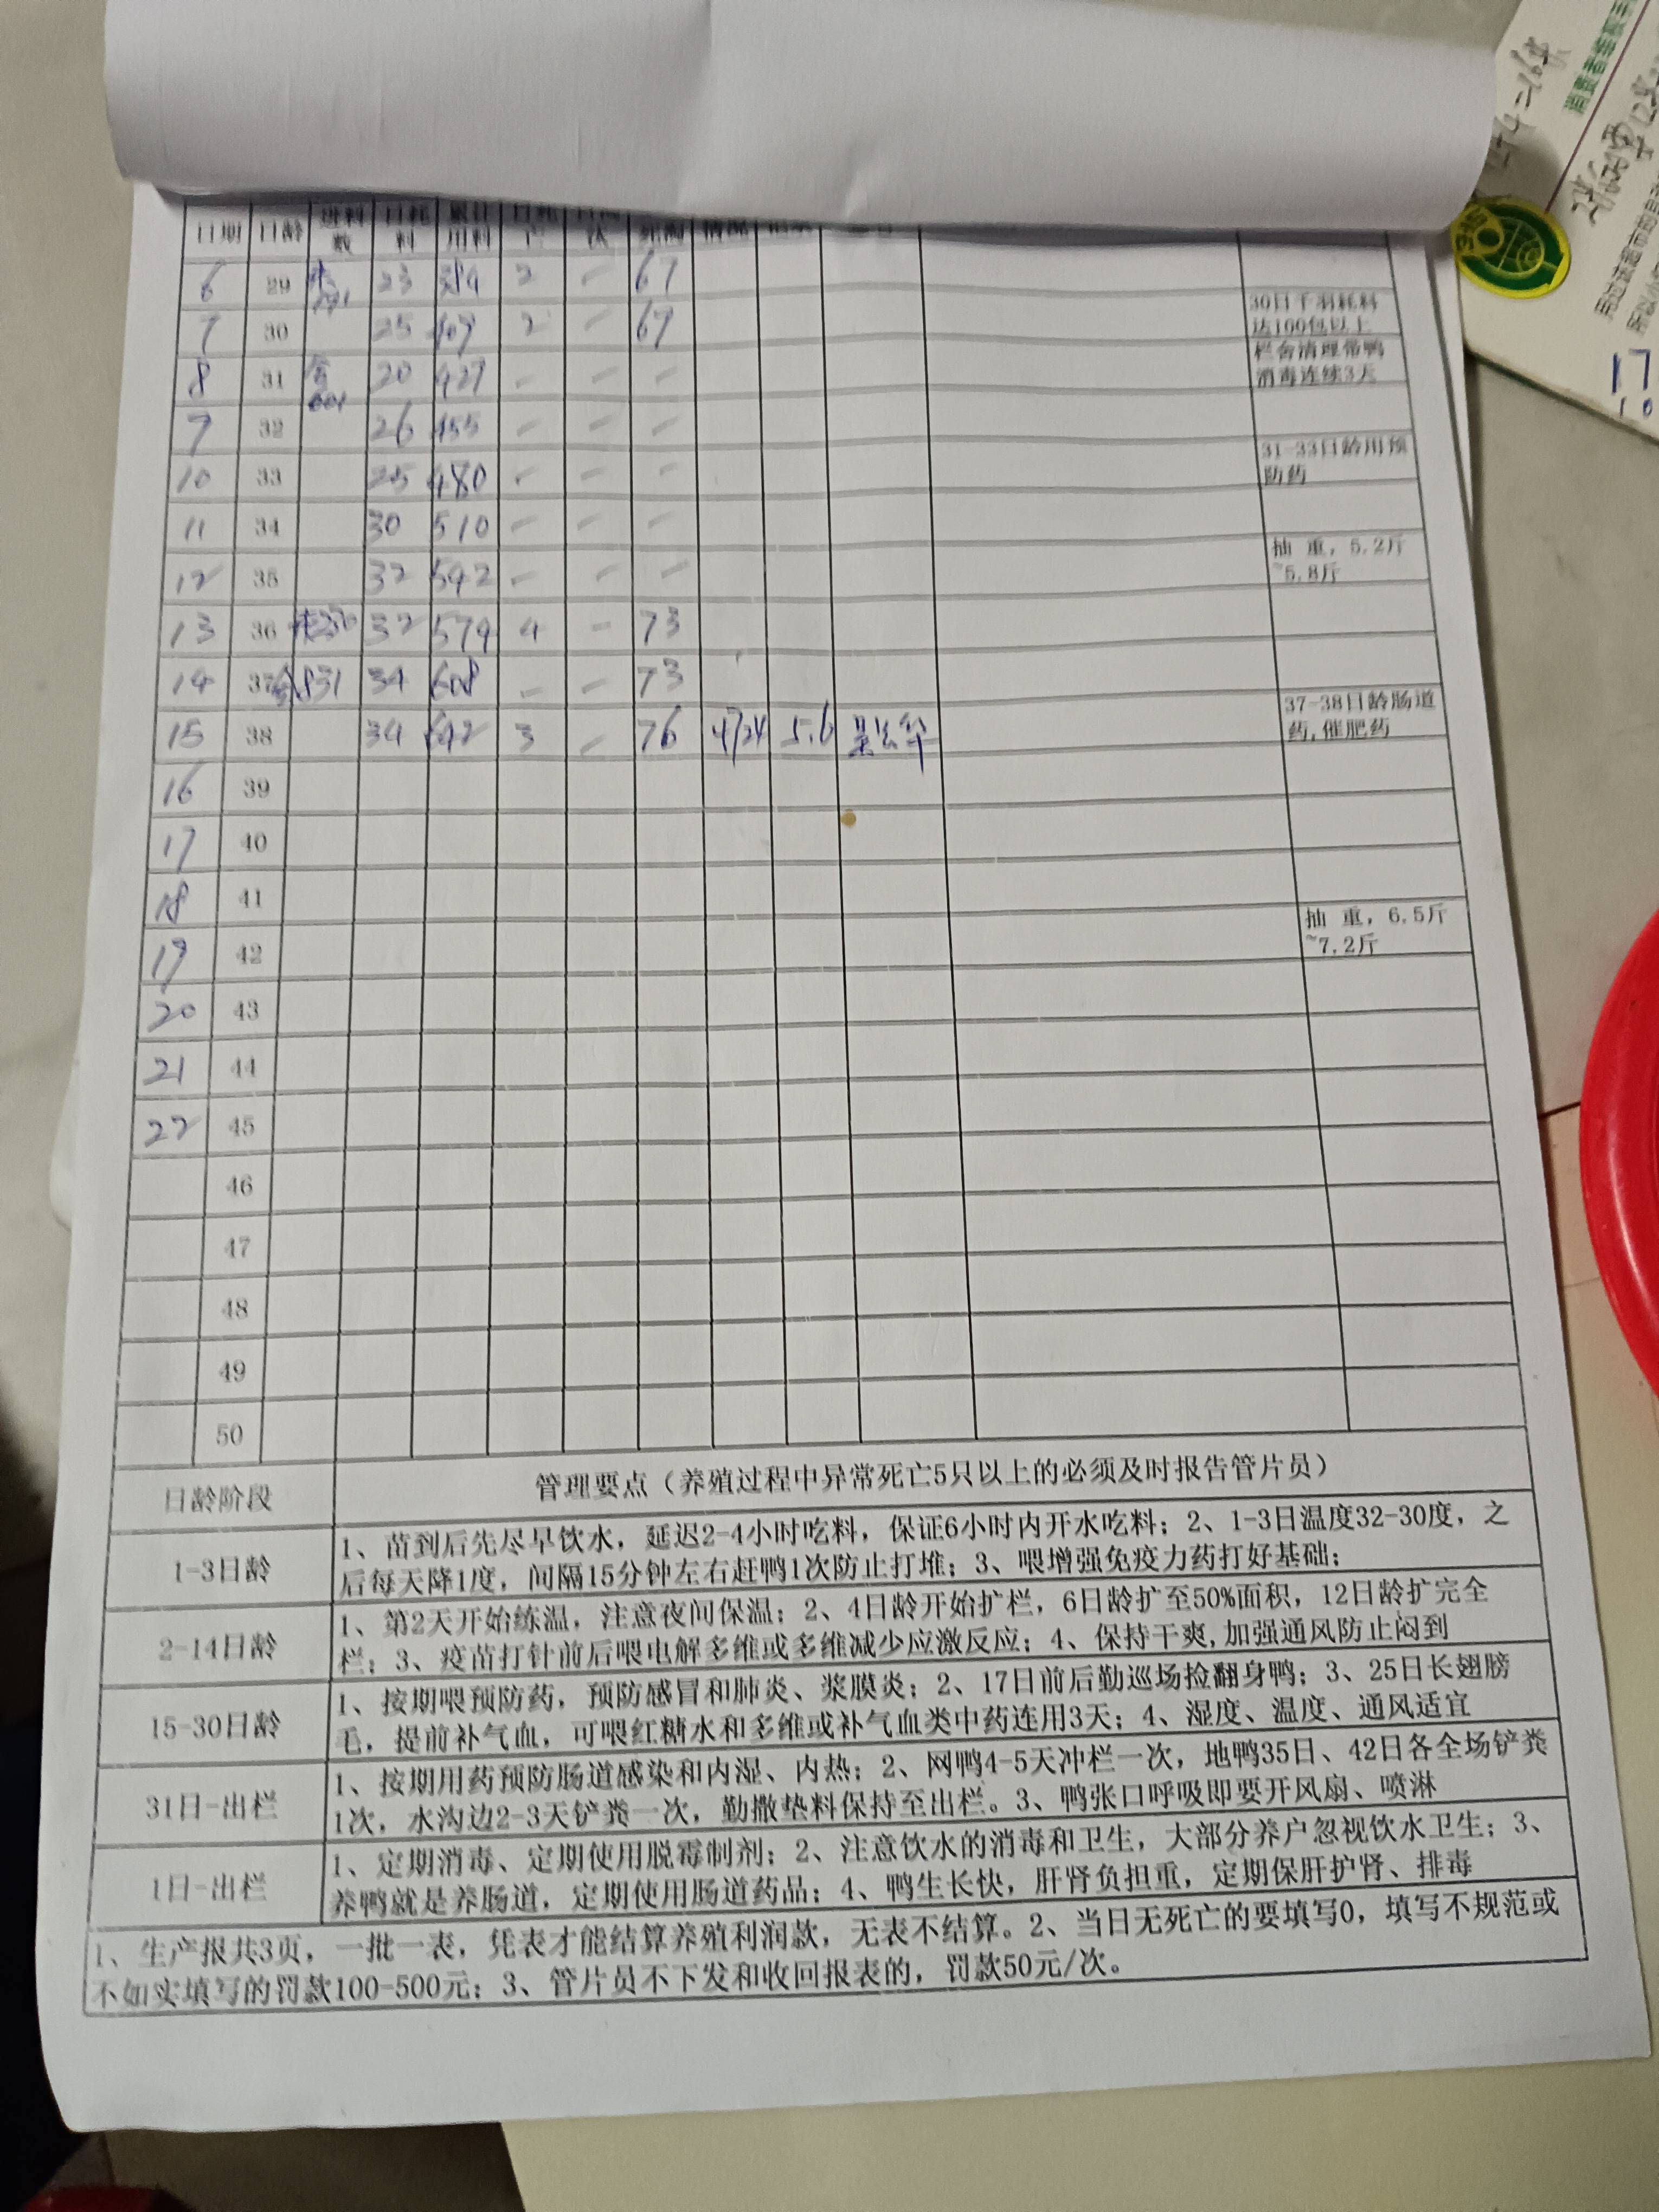 日期 日龄 进料数 日耗料 累计用料 日死亡
6 29 23 384 2 - 67
7 30 25 409 2 - 67
30日千羽耗料
达100包以上
8 31 20 427 - - -
栏舍清理带鸭
消毒连续3天
9 32 26 455 - - -
10 33 25 480 - - -
31-33日龄用预
防药
11 34 30 510 - - -
12 35 32 542 - - -
抽 重, 5.2斤
~5.8斤
13 36 32 574 4 - 73
14 37 831 34 608 - - 73
15 38 34 642 3 - 76 4724 5.6
37-38日龄肠道
药,催肥药
16 39
17 40
18 41
19 42
抽 重, 6.5斤
~7.2斤
20 43
21 44
22 45
46
47
48
49
50
日龄阶段 管理要点（养殖过程中异常死亡5只以上的必须及时报告管片员）
1-3日龄
1、苗到后先尽早饮水，延迟2-4小时吃料，保证6小时内开水吃料；2、1-3日温度32-30度，之
后每天降1度，间隔15分钟左右赶鸭1次防止打堆；3、喂增强免疫力药打好基础；
2-14日龄
1、第2天开始练温，注意夜间保温；2、4日龄开始扩栏，6日龄扩至50%面积，12日龄扩完全
栏；3、疫苗打针前后喂电解多维或多维减少应激反应；4、保持干爽,加强通风防止闷到
15-30日龄
1、按期喂预防药，预防感冒和肺炎、浆膜炎；2、17日前后勤巡场捡翻身鸭；3、25日长翅膀
毛，提前补气血，可喂红糖水和多维或补气血类中药连用3天；4、湿度、温度、通风适宜
31日-出栏
1、按期用药预防肠道感染和内湿、内热；2、网鸭4-5天冲栏一次，地鸭35日、42日各全场铲粪
1次，水沟边2-3天铲粪一次，勤撒垫料保持至出栏。3、鸭张口呼吸即要开风扇、喷淋
1日-出栏
1、定期消毒、定期使用脱霉制剂；2、注意饮水的消毒和卫生，大部分养户忽视饮水卫生；3、
养鸭就是养肠道，定期使用肠道药品；4、鸭生长快，肝肾负担重，定期保肝护肾、排毒
1、生产报共3页，一批一表，凭表才能结算养殖利润款，无表不结算。2、当日无死亡的要填写0，填写不规范或
不如实填写的罚款100-500元；3、管片员不下发和收回报表的，罚款50元/次。